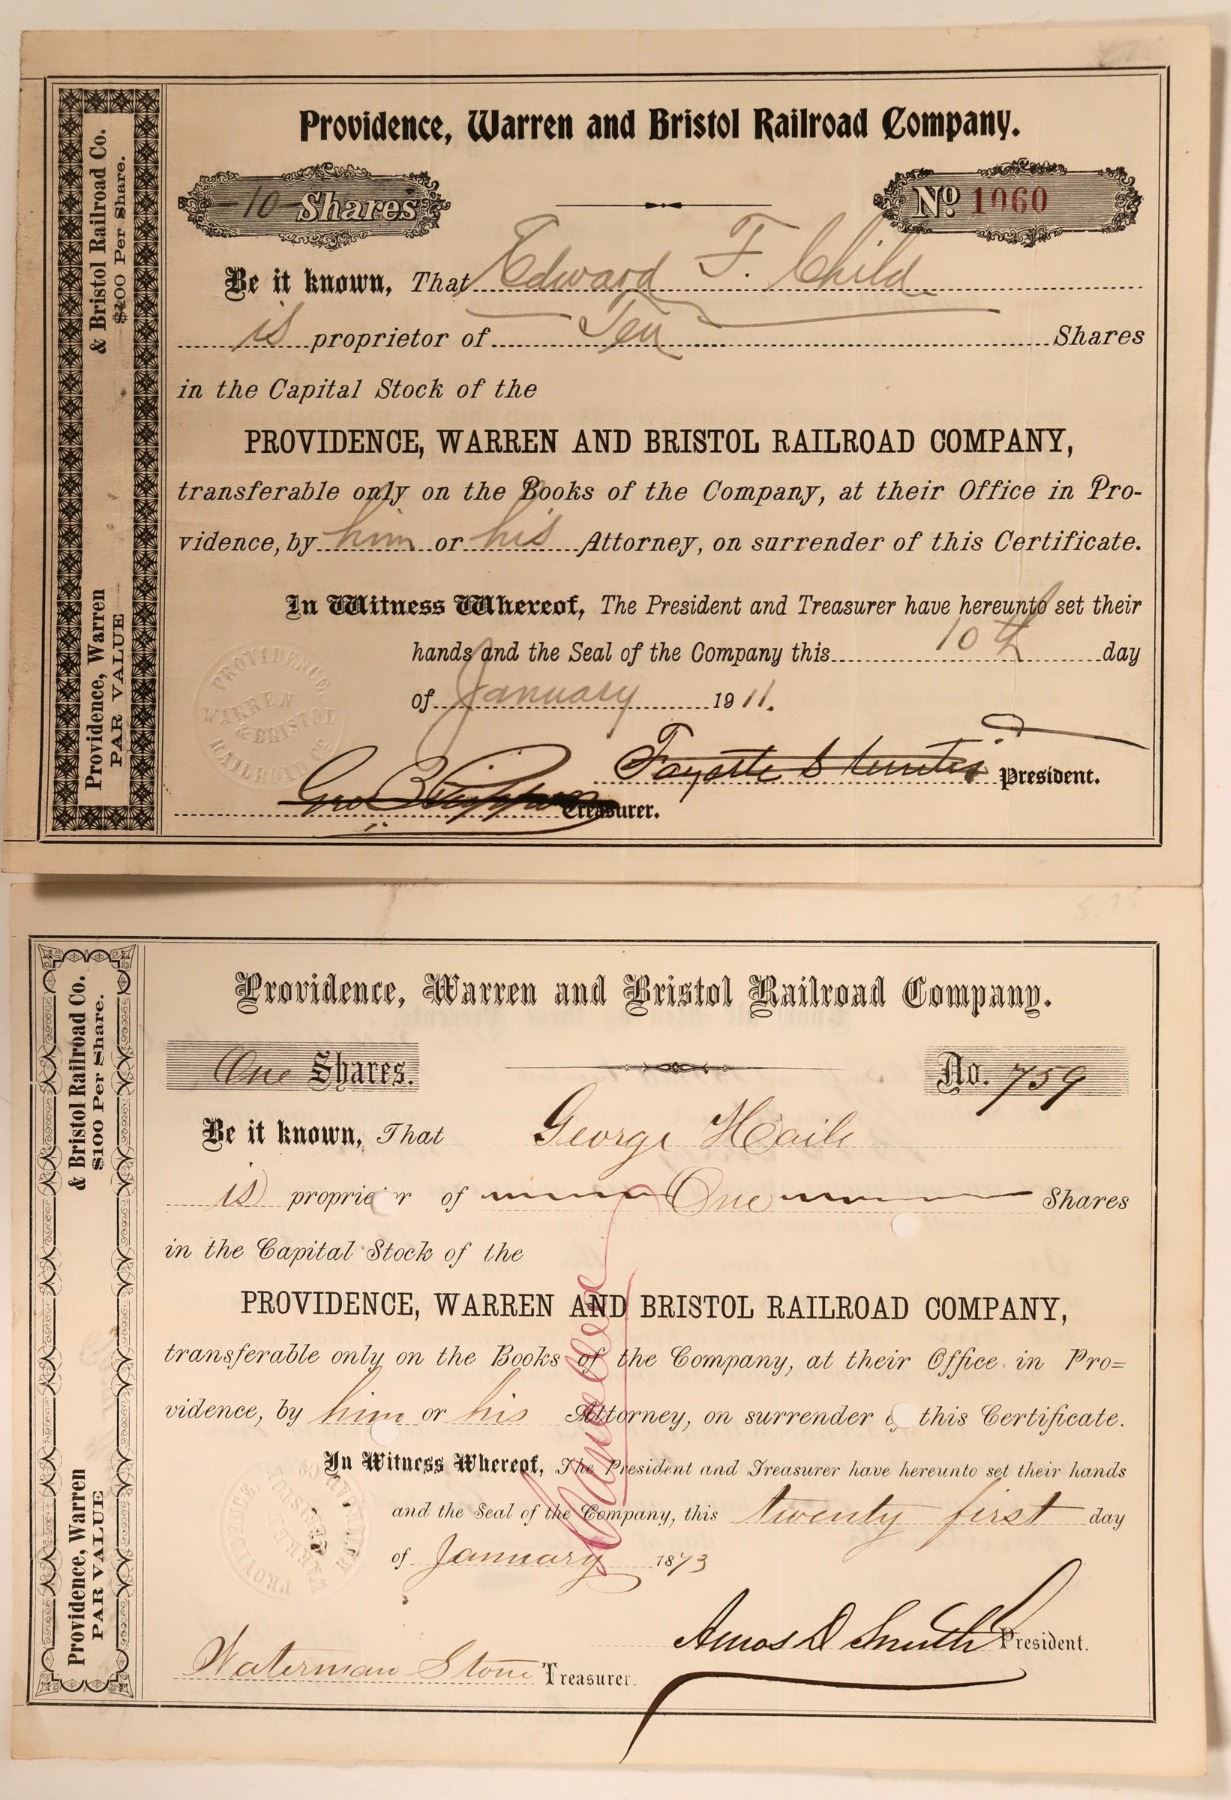 Providence, Warren and Bristol Railroad Company.
-10- Shares
No. 1060
Be it known, That Edward F. Child
is proprietor of Ten Shares
in the Capital Stock of the
PROVIDENCE, WARREN AND BRISTOL RAILROAD COMPANY,
transferable only on the Books of the Company, at their Office in Pro-
vidence, by him or his Attorney, on surrender of this Certificate.
In Witness Whereof, The President and Treasurer have hereunto set their
hands and the Seal of the Company this 10th day
of January 1911.
President.
Treasurer.
Providence, Warren & Bristol Railroad Co.
PAR VALUE $100 Per Share.
PROVIDENCE, WARREN & BRISTOL RAILROAD CO.
Providence, Warren and Bristol Railroad Company.
One Shares.
No. 759
Be it known, That George Haile
is proprietor of One Shares
in the Capital Stock of the
PROVIDENCE, WARREN AND BRISTOL RAILROAD COMPANY,
transferable only on the Books of the Company, at their Office in Pro=
vidence, by him or his Attorney, on surrender of this Certificate.
In Witness Whereof, The President and Treasurer have hereunto set their hands
and the Seal of the Company, this twenty first day
of January 1873
Amos D. Smith President.
Waterman Stone Treasurer.
Cancelled
Providence, Warren & Bristol Railroad Co.
PAR VALUE $100 Per Share.